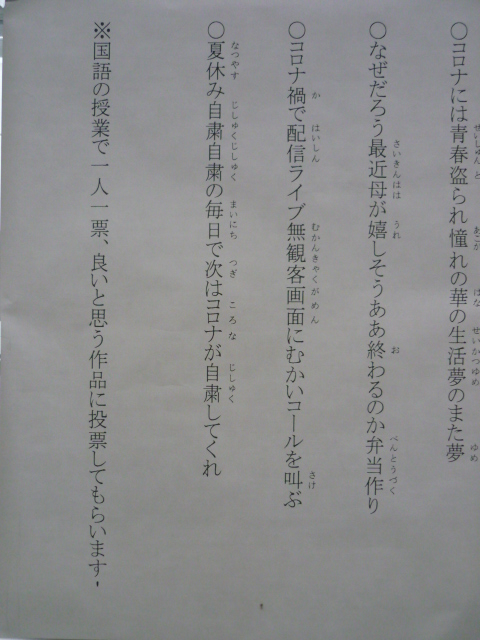 ○コロナには青春盗られ憧れの華の生活夢のまた夢
○なぜだろう最近母が嬉しそうああ終わるのか弁当作り
○コロナ禍で配信ライブ無観客画面にむかいコールを叫ぶ
○夏休み自粛自粛の毎日で次はコロナが自粛してくれ
※国語の授業で一人一票、良いと思う作品に投票してもらいます。